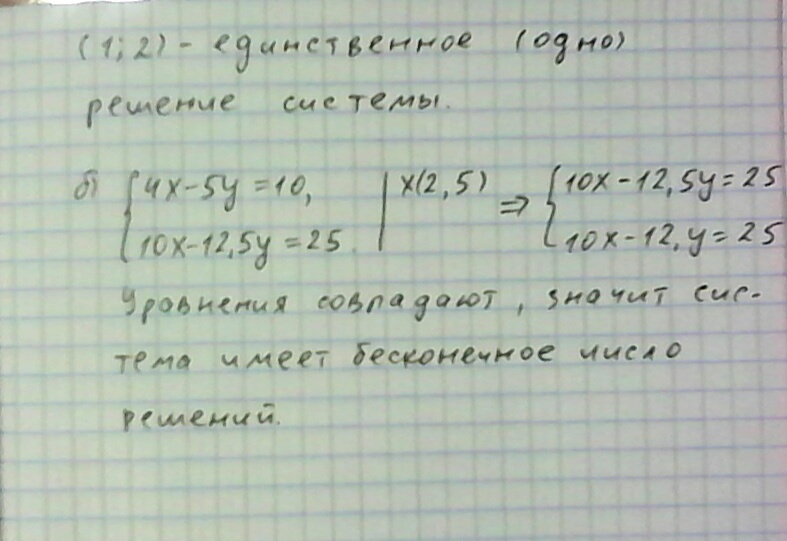 (1; 2) - единственное (одно)
решение системы.
б) {4x-5y=10, | x(2,5) ⇒ {10x-12,5y=25
{10x-12,5y=25. | {10x-12,y=25
Уровнения совпадают, значит сис-
тема имеет бесконечное число
решений.